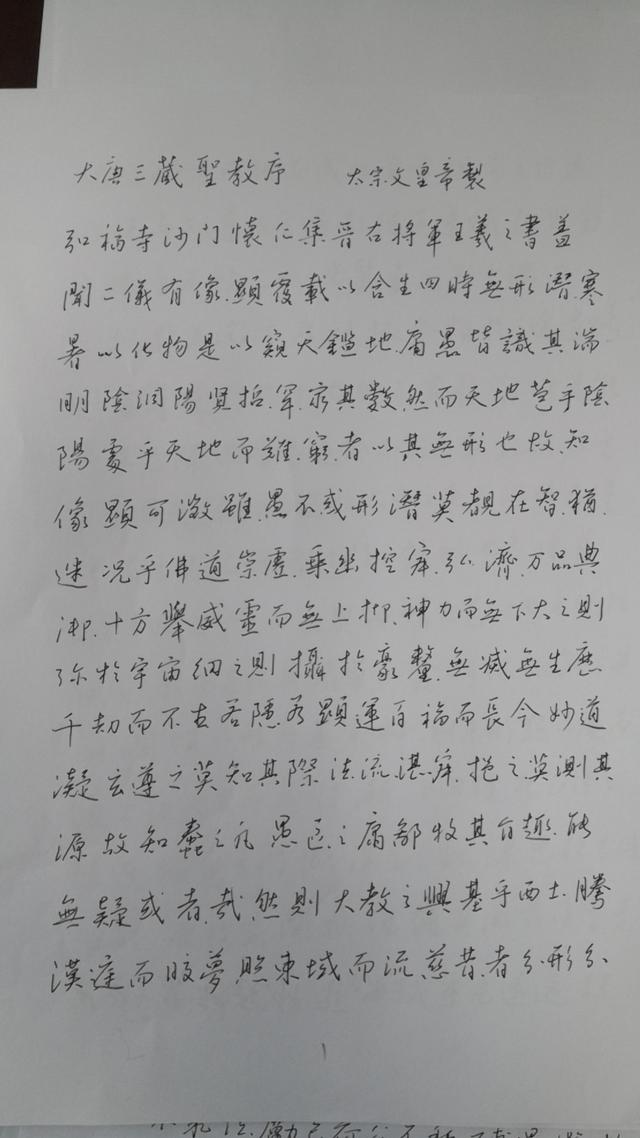 大唐三蔵聖教序 太宗文皇帝製
弘福寺沙門懷仁集晉右將軍王羲之書蓋
聞二儀有像顯覆載以含生四時無形潛寒
暑以化物是以窺天鑑地庸愚皆識其端
明陰洞陽賢哲罕窮其數然而天地苞乎陰
陽處乎天地而難窮者以其無形也故知
像顯可徵雖愚不惑形潛莫覩在智猶
迷况乎佛道崇虛乘幽控寂弘濟万品典
御十方舉威靈而無上抑神力而無下大之則
弥於宇宙細之則攝於豪釐無滅無生歷
千劫而不古若隱若顯運百福而長今妙道
凝玄遵之莫知其際法流湛寂挹之莫測其
源故知蠢之凡愚區之庸鄙投其旨趣能
無疑或者哉然則大教之興基乎西土騰
漢庭而皎夢照東域而流慈昔者分形分